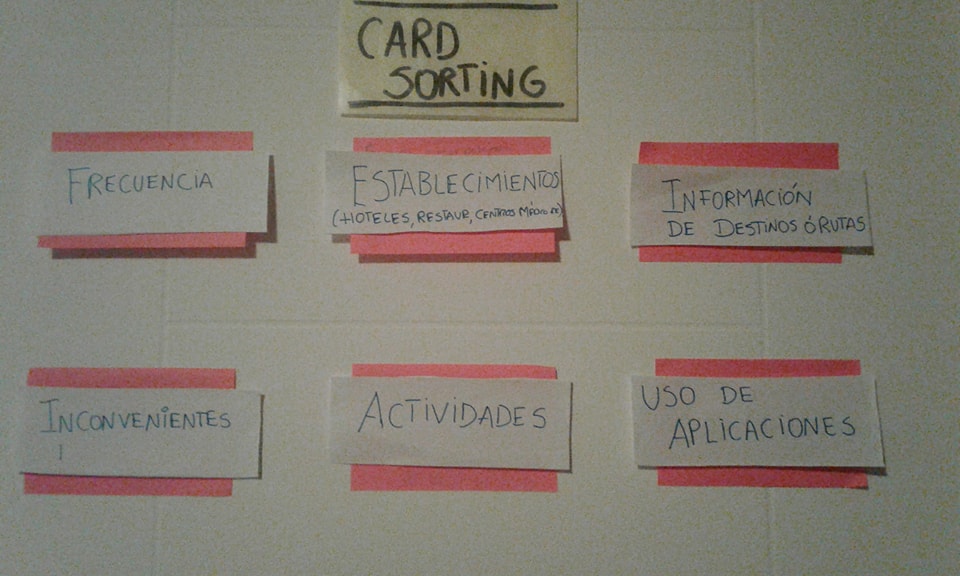 CARD
SORTING
FRECUENCIA
ESTABLECIMIENTOS
(HOTELES, RESTAUR, CENTROS MÉDICO
INFORMACIÓN
DE DESTINOS Ó RUTAS
INCONVENIENTES
ACTIVIDADES
USO DE
APLICACIONES